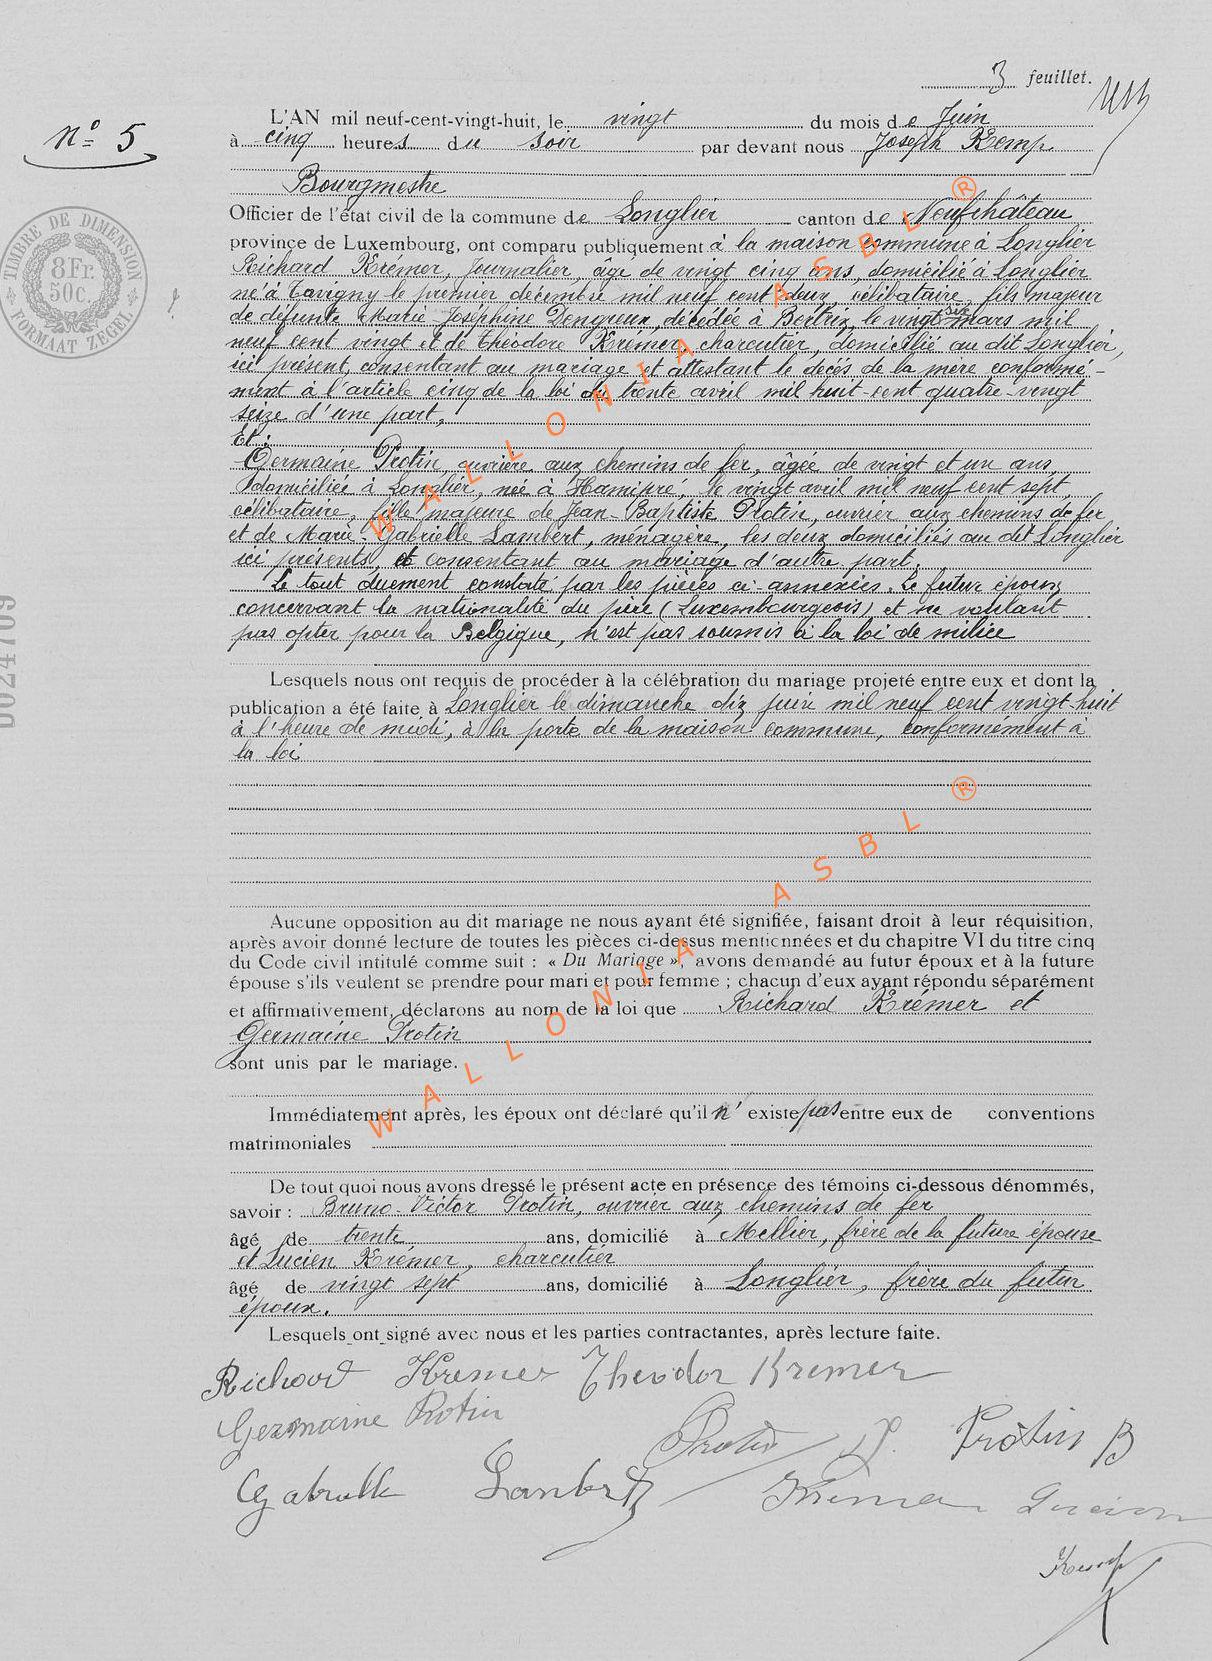 3 feuillet.
Nº 5
L'AN mil neuf-cent-vingt-huit, le vingt du mois de Juin
à cinq heures du soir par devant nous Joseph Kemp
Bourgmestre
Officier de l'état civil de la commune de Longlier canton de Neufchâteau
province de Luxembourg, ont comparu publiquement à la maison commune à Longlier
Richard Krémer, journalier, âgé de vingt cinq ans, domicilié à Longlier
né à Tavigny le premier décembre mil neuf cent deux, célibataire, fils majeur
de défunte Marie-Joséphine Dengreux, décédée à Bertrix le vingt six mars mil
neuf cent vingt et de Théodore Krémer, charcutier, domicilié au dit Longlier,
ici présent, consentant au mariage et attestant le décès de la mère conformé-
ment à l'article cinq de la loi du trente avril mil huit-cent quatre-vingt
seize d'une part,
Et :
Germaine Protin, ouvrière aux chemins de fer, âgée de vingt et un ans,
domiciliée à Longlier, née à Hamipré, le vingt avril mil neuf cent sept,
célibataire, fille majeure de Jean-Baptiste Protin, ouvrier aux chemins de fer
et de Marie-Gabrielle Lambert, ménagère, les deux domiciliés au dit Longlier
ici présents, et consentant au mariage d'autre part.
Le tout duement constaté par les pièces ci-annexées. Le futur époux
concervant la nationalité du père (Luxembourgeois) et ne voulant
pas opter pour la Belgique, n'est pas soumis à la loi de milice
Lesquels nous ont requis de procéder à la célébration du mariage projeté entre eux et dont la
publication a été faite à Longlier le dimanche dix juin mil neuf cent vingt-huit
à l'heure de midi, à la porte de la maison commune, conformément à
la loi
Aucune opposition au dit mariage ne nous ayant été signifiée, faisant droit à leur réquisition,
après avoir donné lecture de toutes les pièces ci-dessus mentionnées et du chapitre VI du titre cinq
du Code civil intitulé comme suit : « Du Mariage », avons demandé au futur époux et à la future
épouse s'ils veulent se prendre pour mari et pour femme ; chacun d'eux ayant répondu séparément
et affirmativement, déclarons au nom de la loi que Richard Krémer et
Germaine Protin
sont unis par le mariage.
Immédiatement après, les époux ont déclaré qu'il n'existe pas entre eux de conventions
matrimoniales
De tout quoi nous avons dressé le présent acte en présence des témoins ci-dessous dénommés,
savoir : Bruno-Victor Protin, ouvrier aux chemins de fer
âgé de trente ans, domicilié à Mellier, frère de la future épouse
et Lucien Krémer, charcutier
âgé de vingt sept ans, domicilié à Longlier, frère du futur
époux.
Lesquels ont signé avec nous et les parties contractantes, après lecture faite.
Richard Kremer Theodor Kremer
Germaine Protin
Protin J. Protin B
Gabrielle Lambert Krémer Lucien
Kemp
TIMBRE DE DIMENSION
8Fr.
50c.
FORMAAT ZEGEL
D024709
WALLONIA ASBL ®
WALLONIA ASBL ®